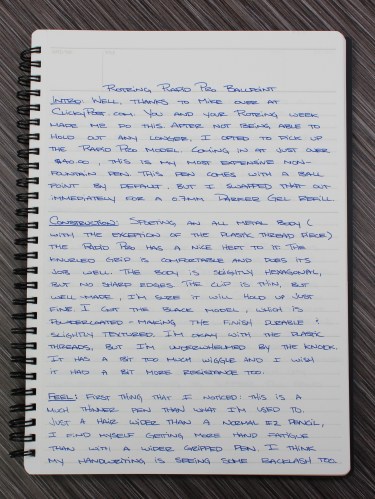 Rotring Rapid Pro Ballpoint
Intro: Well, thanks to Mike over at
ClickyPost.com. You and your Rotring week
made me do this. After not being able to
hold out any longer, I opted to pick up
the Rapid Pro model. Coming in at just over
$40.00, this is my most expensive non-
fountain pen. This pen comes with a ball
point by default, but I swapped that out
immediately for a 0.7mm Parker Gel refill
Construction: Sporting an all metal body (
with the exception of the plastic thread piece)
the Rapid Pro has a nice heft to it. The
knurled grip is comfortable and does its
job well. The body is slightly hexagonal,
but no sharp edges. The clip is thin, but
well-made, I'm sure it will hold up just
fine. I got the black model, which is
powdercoated - making the finish durable &
slightly textured. I'm okay with the plastic
threads, but I'm underwhelmed by the knock.
It has a bit too much wiggle and I wish
it had a bit more resistance too.
Feel: First thing that I noticed: this is a
much thinner pen than what I'm used to.
Just a hair wider than a normal #2 pencil,
I find myself getting more hand fatigue
than with a wider gripped pen. I think
my handwriting is seeing some backlash too.